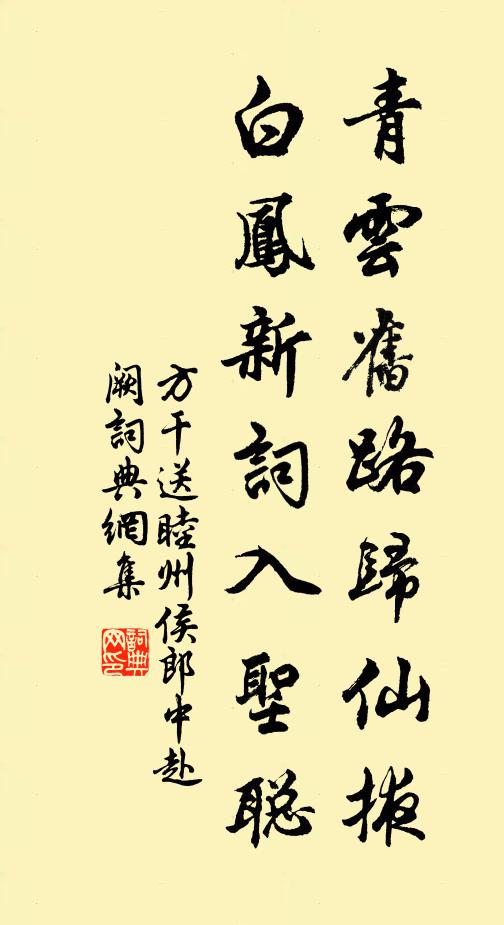 青雲舊路歸仙掖
白鳳新詞入聖聰
方干送睦州侯郎中赴
闕詞典網集
詞典
网印